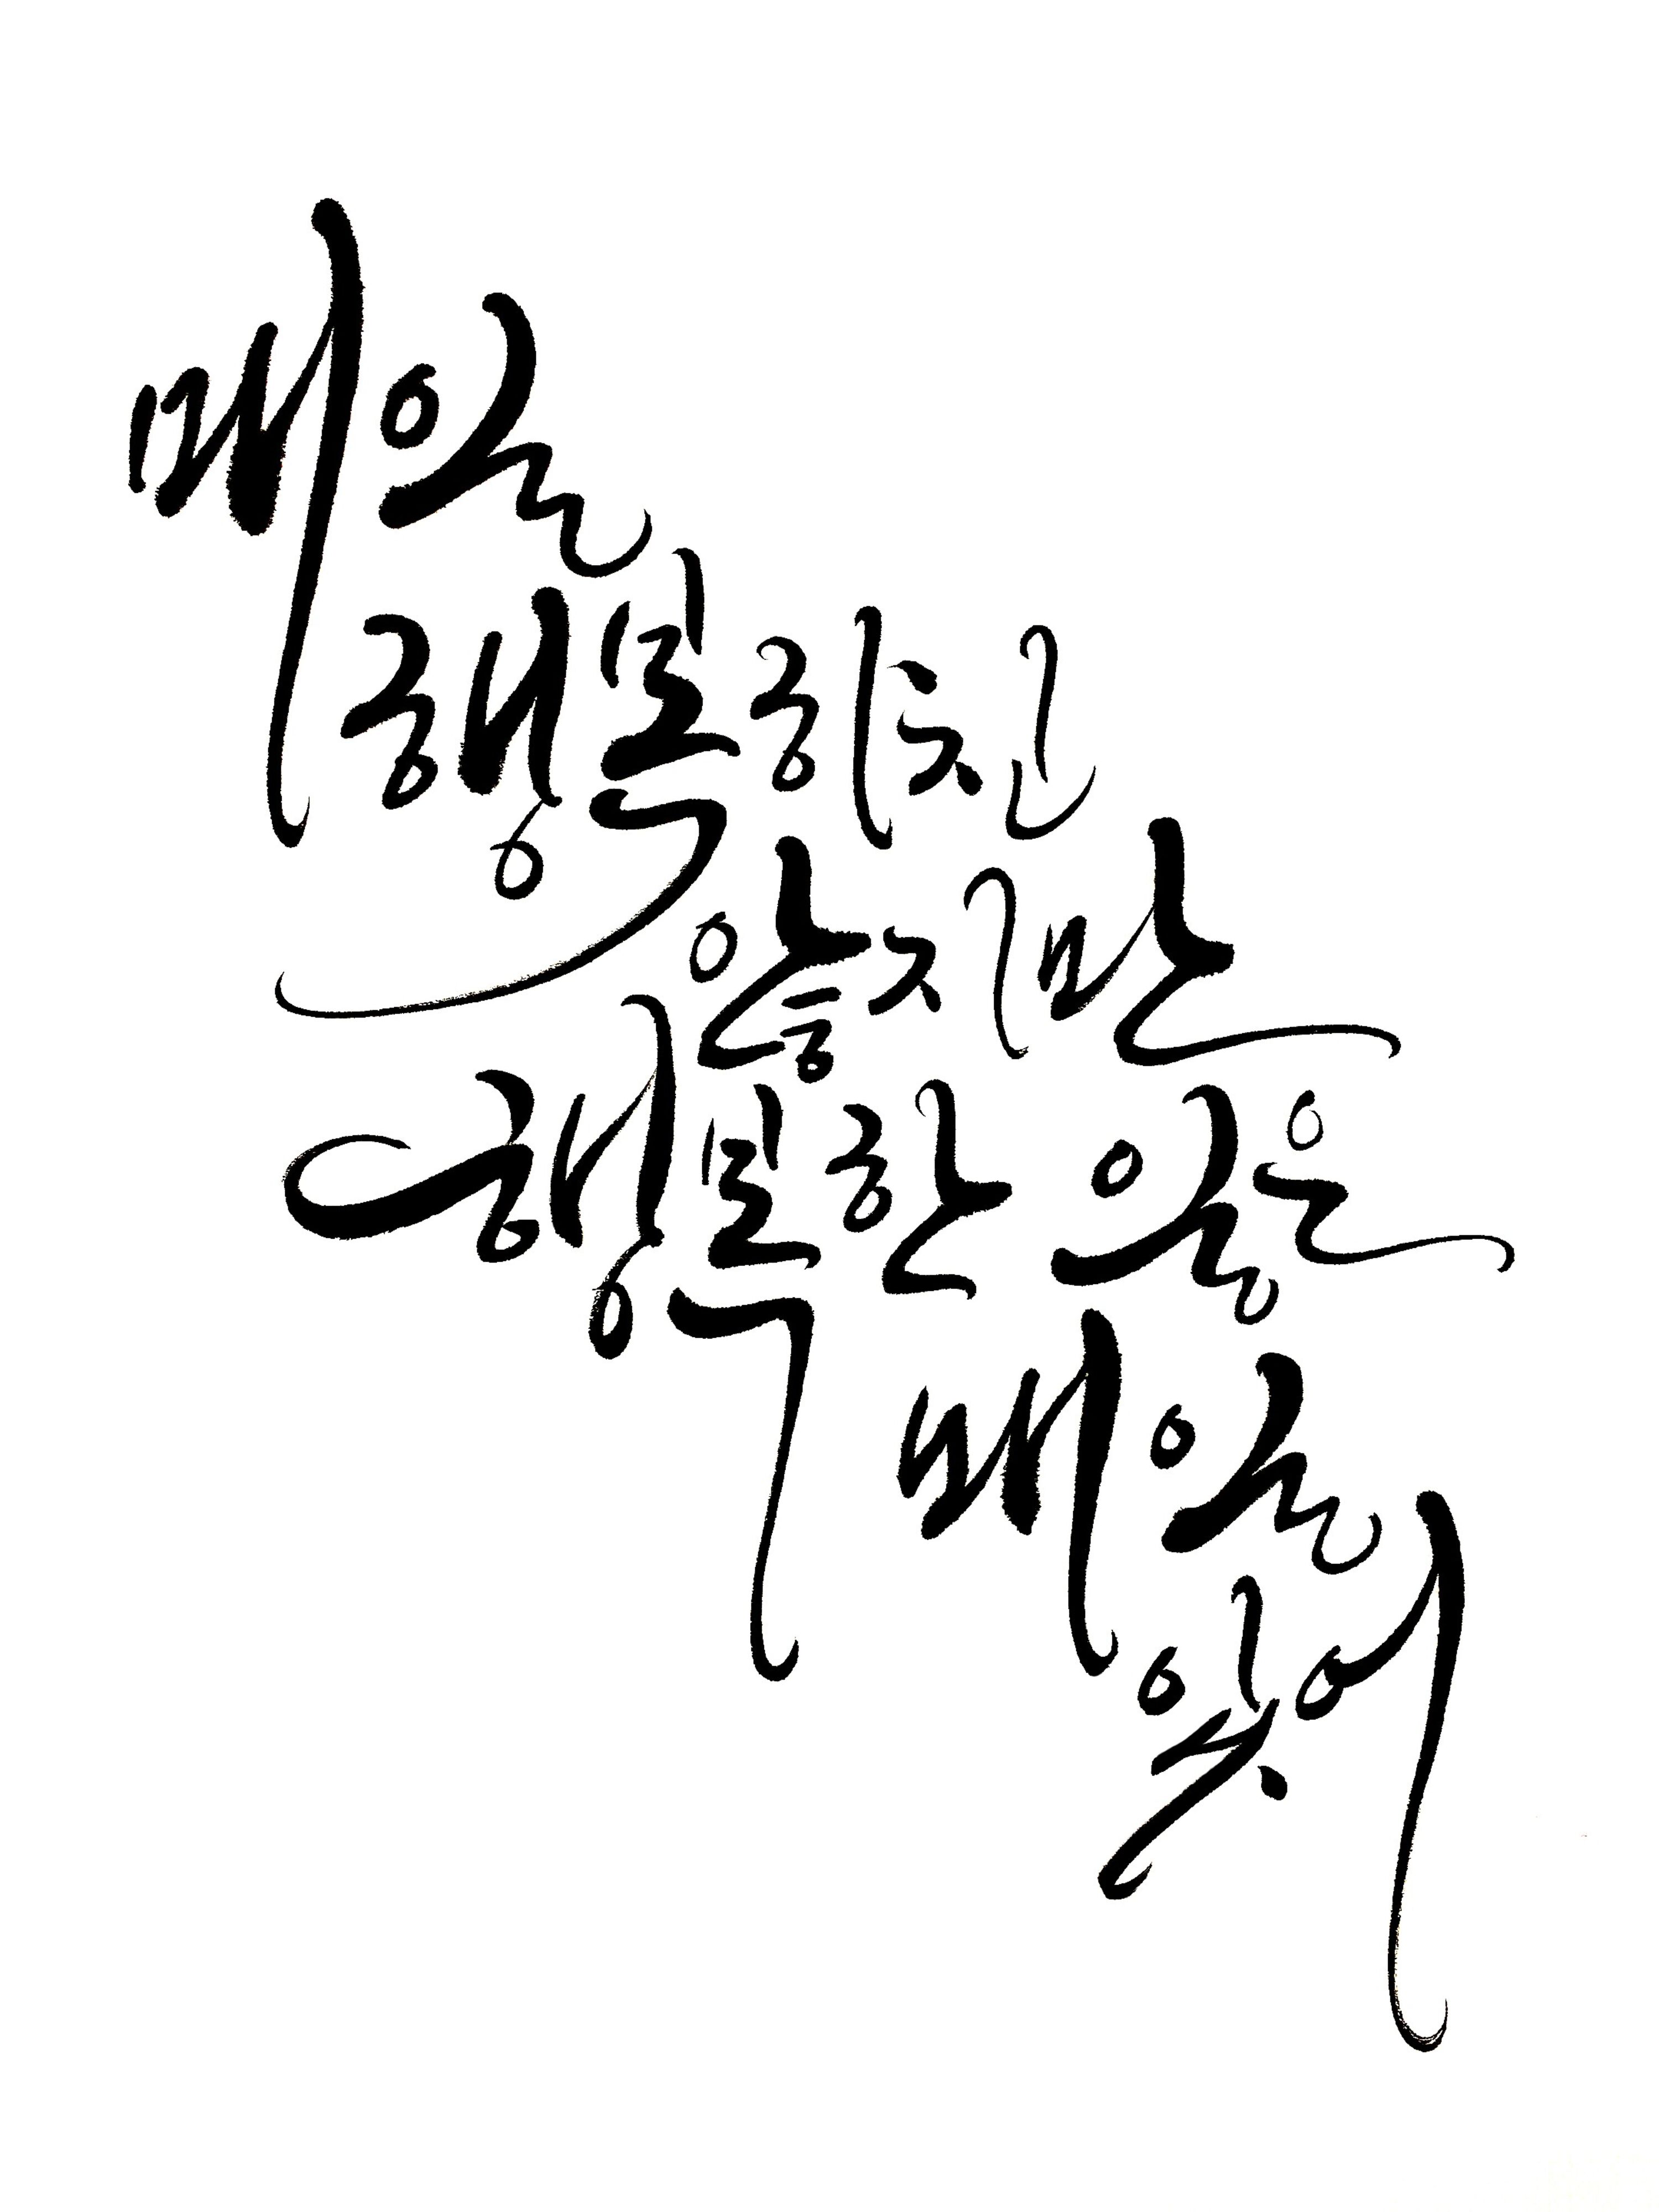 매일
행복하진
않지만
행복한 일은
매일
있어